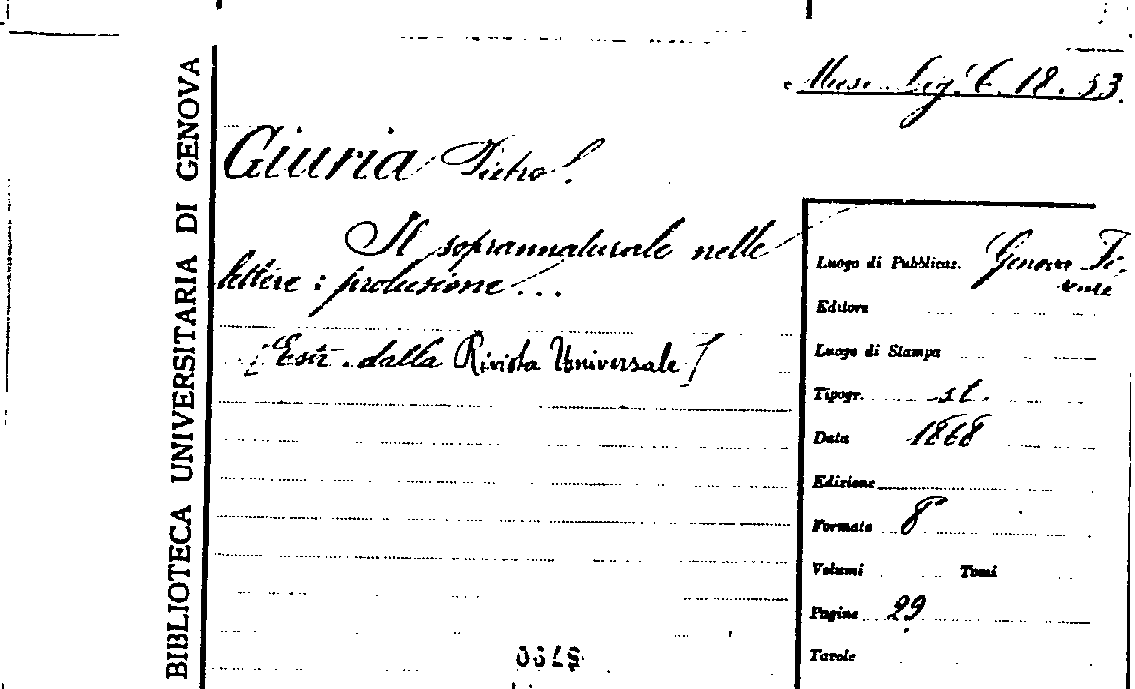 BIBLIOTECA UNIVERSITARIA DI GENOVA
Misc. Lig. C. 18. 53.
Giuria Pietro.
Il soprannaturale nelle
lettere : prolusione...
[Estr. dalla Rivista Universale]
Luogo di Pubblicaz. Genova Fi-
renze
Editore
Luogo di Stampa
Tipogr. st.
Data 1868
Edizione
Formato 8°
Volumi Tomi
Pagine 29
Tavole